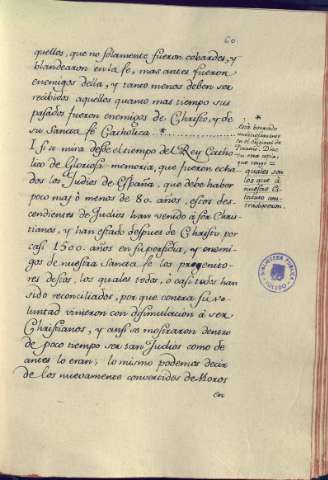 60
quellos, que no solamente fueron cobardes, y
blandearon en la fe, mas antes fueron
enemigos della, y tanto menos deben ser
recibidos aquellos quanto mas tiempo sus
pasados fueron enemigos de Christo, y de
su Sancta fe Catholica. *
I si se mira desde el tiempo del Rey Catho-
lico de Gloriosa memoria, que fueron echa-
dos los Judios de España, que debe haber
poco mas, ò menos de 80. años, estos des-
cendientes de Judios han venido à ser Chris-
tianos, y han estado despues de Christo por
casi 1500. años en su perfidia, y enemi-
gos de nuestra sancta fe los progenito-
res destos, los quales todos, ò casi todos han
sido reconciliados, por que contra su vo-
luntad vinieron con disimulacion à ser
Christianos, y ansi se mostraron dentro
de poco tiempo ser tan Judios como de
antes lo eran; lo mismo podemos decir
de los nuevamente convertidos de Moros
en
*
Está borrado
en el original de
una copia,
que tengo
quales son
los que à
nuestro Es-
tatuto con-
tradixeron.
BIBLIOTECA PUBLICA
TOLEDO